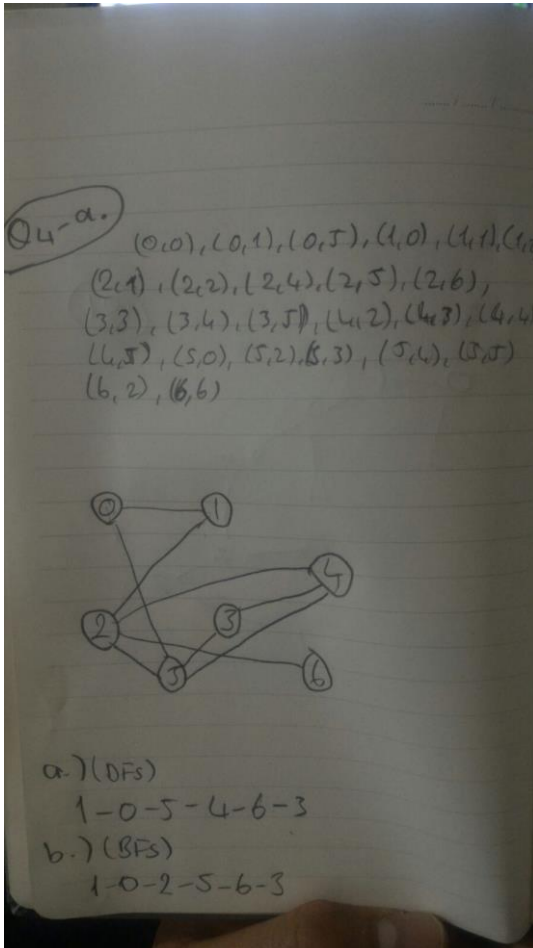 Q4-a.
(0,0), (0,1), (0,5), (1,0), (1,1), (1,
(2,1), (2,2), (2,4), (2,5), (2,6),
(3,3), (3,4), (3,5), (4,2), (4,3), (4,4
(4,5), (5,0), (5,2), (5,3), (5,4), (5,5)
(6,2), (6,6)
0 1
4
2 3
5 6
a.) (DFS)
1-0-5-4-6-3
b.) (BFS)
1-0-2-5-6-3